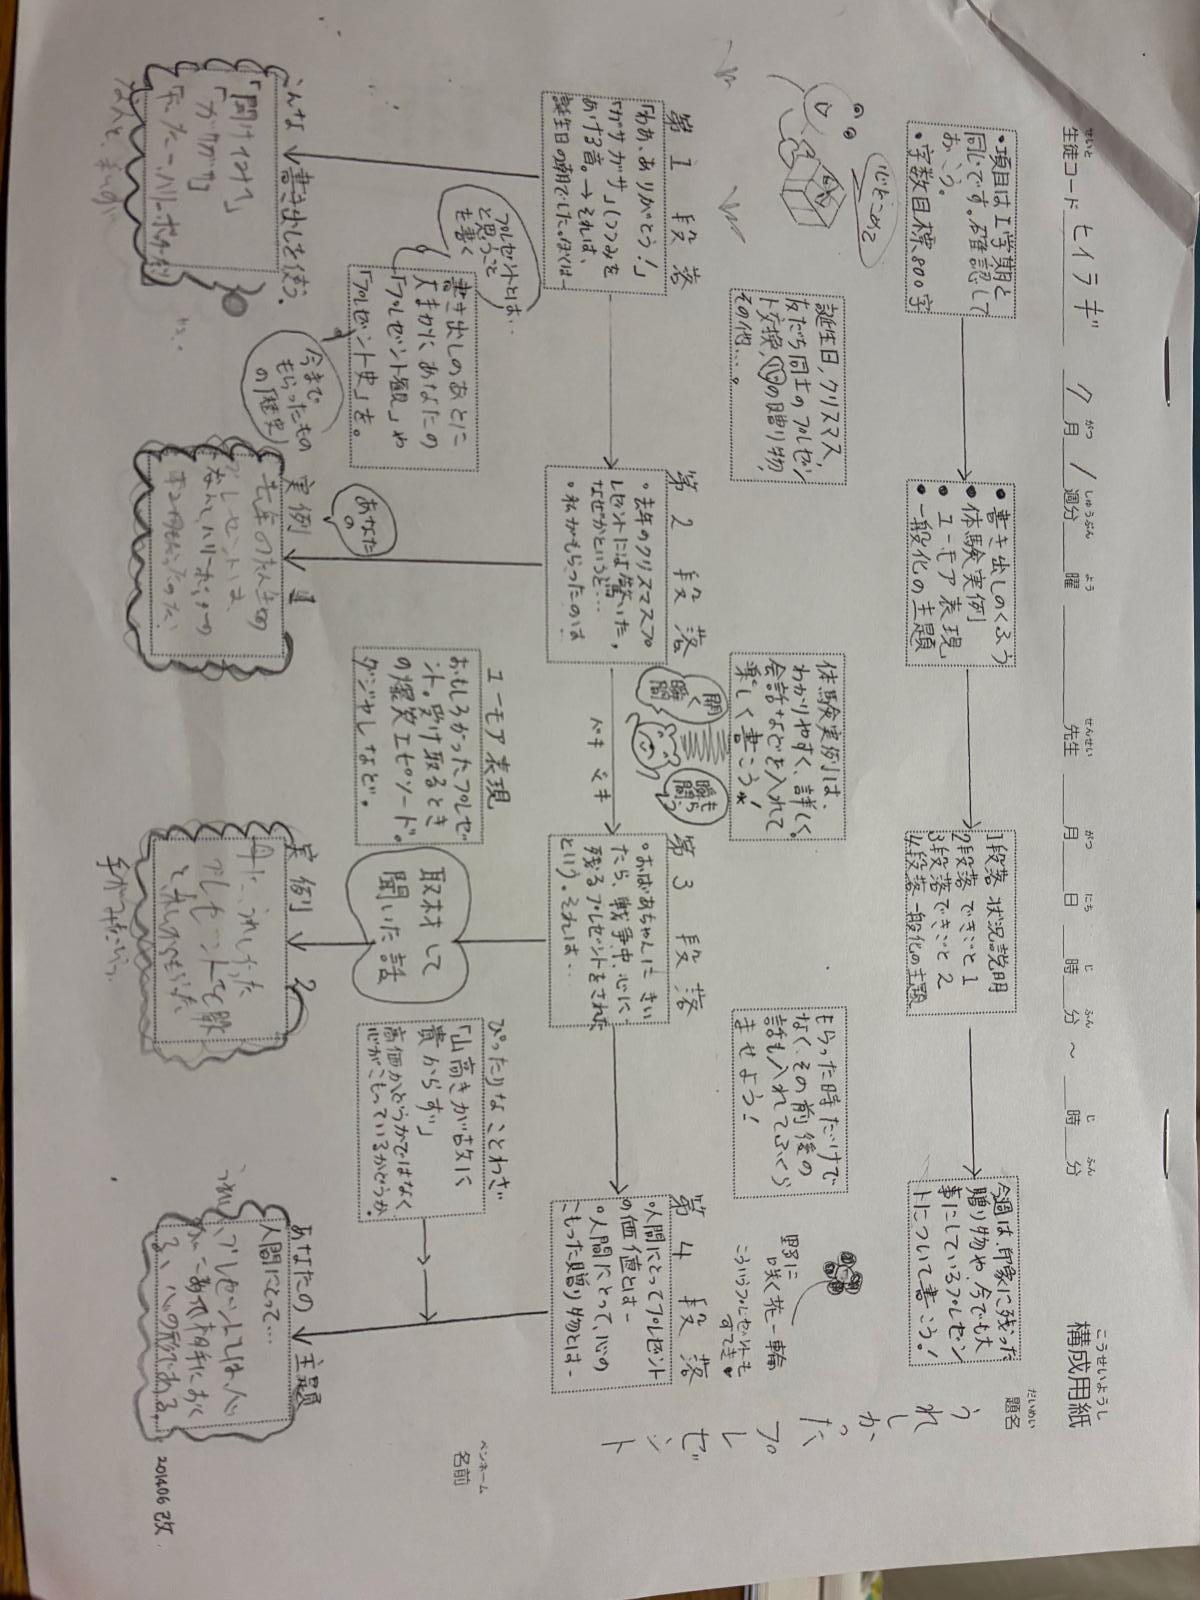 構成用紙
こうせいようし
生徒コード ヒイラギ 7月1週分 曜 先生 月 日 時 分 〜 時 分
せいと がつ しゅうぶん よう せんせい がつ にち じ ふん じ ふん
題名
だいめい
うれしかったプレゼント
ペンネーム
名前
・項目はI学期と
同じです。確認して
おこう。
・字数目標、800字
・書き出しのくふう
・体験実例
・ユーモア表現
・一般化の主題
1段落 状況説明
2段落 できごと1
3段落 できごと2
4段落 一般化の主題
今週は、印象に残った
贈り物や、今でも大
事にしているプレゼン
トについて書こう!
心をこめて
誕生日、クリスマス、
友だち同士のプレゼン
ト交換、心の贈り物、
その他…。
体験実例は、
わかりやすく、詳しく。
会話などを入れて
楽しく書こう!
もらった時だけで
なく、その前後の
話も入れてふくら
ませよう!
野に
咲く花一輪
こういうプレゼントも
すてき
第1段落
「わあ、ありがとう!」
「ガサガサ」(つつみを
あける音。→それは、
誕生日の朝でした。ぼくは―
第2段落
・去年のクリスマスプ
レゼントには驚いた。
なぜかというと…
・私がもらったのは
開く
瞬間
ドキドキ
第3段落
・おばあちゃんにきい
たら、戦争中、心に
残るプレゼントをされた
という。それは…
第4段落
・人間にとってプレゼント
の価値とは―
・人間にとって、心の
こもった贈り物とは―
プレゼントとは…
と思うこと
を書く
書き出しのあとに
大まかにあなたの
「プレゼント観」や
「プレゼント史」を。
今まで
もらったもの
の「歴史」
あなたの
ユーモア表現
おもしろかったプレゼ
ント。受け取るとき
の爆笑エピソード。
ダジャレなど。
取材して
聞いた話
ぴったりなことわざ
「山高きが故に
貴からず」
高価かどうかではなく
心がこもっているかどうか。
こんな書き出しを使う。
「ガサガサ」
実例1
去年のたん生日の
プレゼントは、
なんと、ハリーポッターの
実例2
母に、うれしかった
プレゼントを聞
くと
あなたの主題
人間にとって…
プレゼントとは、心
がこもって相手におく
る、心の形である。
201406改